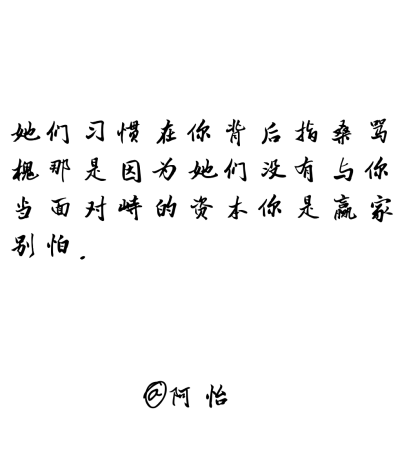 她们习惯在你背后指桑骂
槐那是因为她们没有与你
当面对峙的资本你是赢家
别怕.
@阿怡